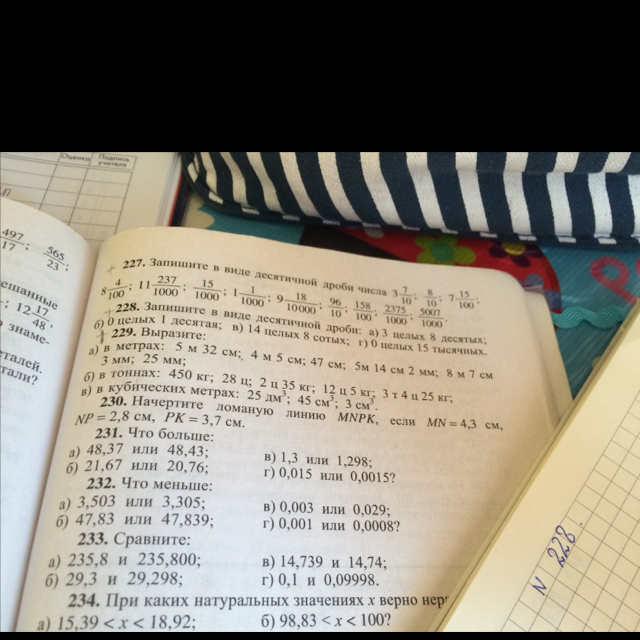 Оценка
Подпись учителя
497/17; 565/23;
ешанные
; 12 17/48;
знаме-
еталей.
тали?
227. Запишите в виде десятичной дроби числа 3 7/10; 8/10; 7 15/100;
8 4/100; 11 237/1000; 15/1000; 1 1/1000; 9 18/10000; 96/10; 158/100; 2375/1000; 5007/1000.
228. Запишите в виде десятичной дроби: а) 3 целых 8 десятых;
б) 0 целых 1 десятая; в) 14 целых 8 сотых; г) 0 целых 15 тысячных.
229. Выразите:
а) в метрах: 5 м 32 см; 4 м 5 см; 47 см; 5м 14 см 2 мм; 8 м 7 см
3 мм; 25 мм;
б) в тоннах: 450 кг; 28 ц; 2 ц 35 кг; 12 ц 5 кг; 3 т 4 ц 25 кг;
в) в кубических метрах: 25 дм³; 45 см³; 3 см³.
230. Начертите ломаную линию MNPK, если MN = 4,3 см,
NP = 2,8 см, PK = 3,7 см.
231. Что больше:
а) 48,37 или 48,43; в) 1,3 или 1,298;
б) 21,67 или 20,76; г) 0,015 или 0,0015?
232. Что меньше:
а) 3,503 или 3,305; в) 0,003 или 0,029;
б) 47,83 или 47,839; г) 0,001 или 0,0008?
233. Сравните:
а) 235,8 и 235,800; в) 14,739 и 14,74;
б) 29,3 и 29,298; г) 0,1 и 0,09998.
234. При каких натуральных значениях x верно нер
а) 15,39 < x < 18,92; б) 98,83 < x < 100?
N 228.